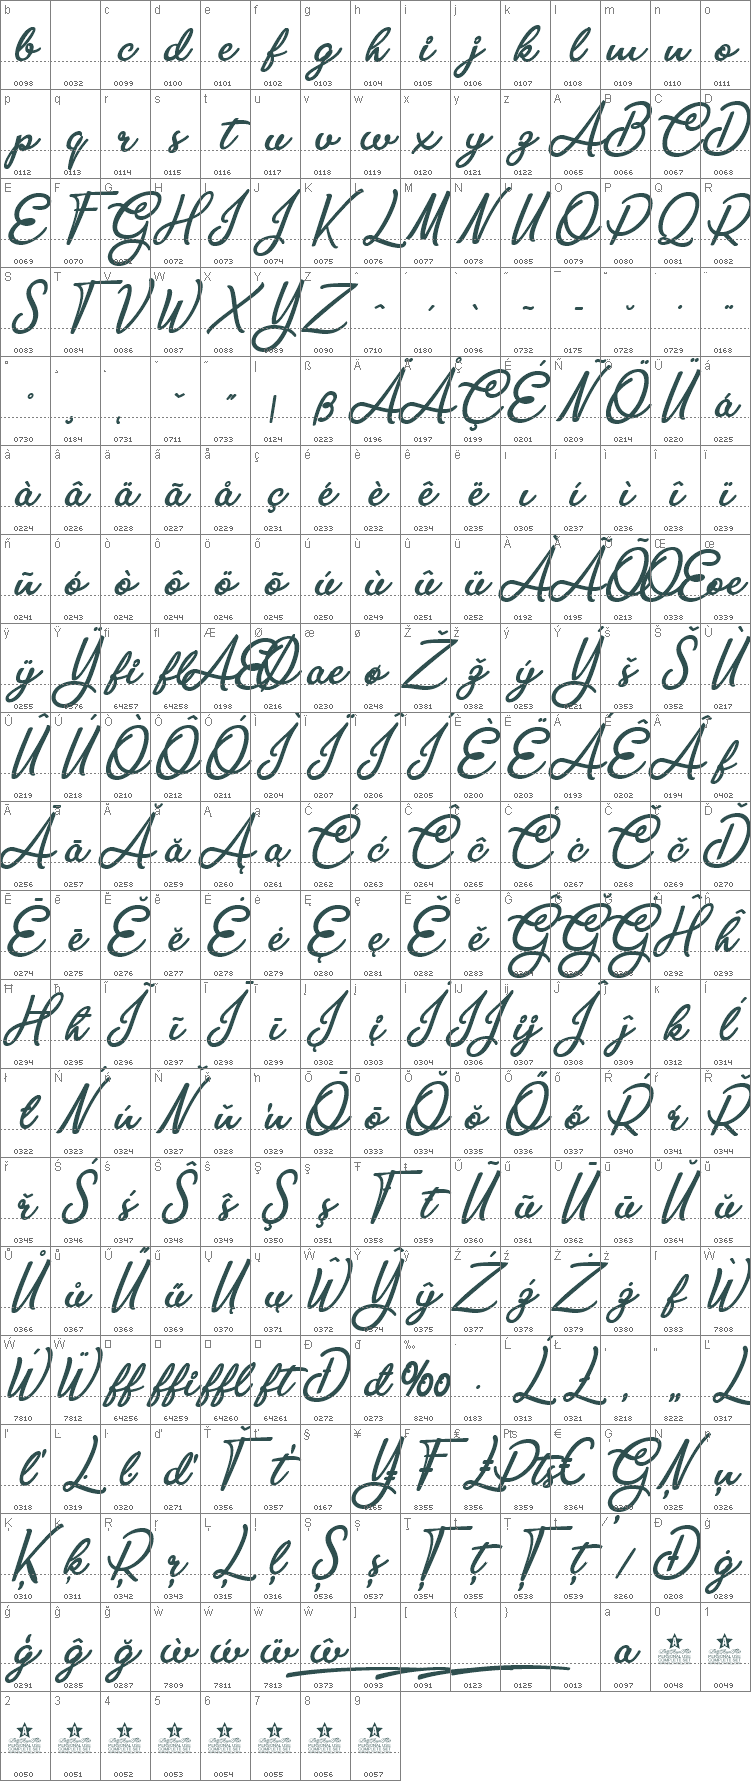 b c d e f g h i j k l m n o
b c d e f g h i j k l m n o
0098 0032 0099 0100 0101 0102 0103 0104 0105 0106 0107 0108 0109 0110 0111
p q r s t u v w x y z A B C D
p q r s t u v w x y z A B C D
0112 0113 0114 0115 0116 0117 0118 0119 0120 0121 0122 0065 0066 0067 0068
E F G H I J K L M N U O P Q R
E F G H I J K L M N U O P Q R
0069 0070 0071 0072 0073 0074 0075 0076 0077 0078 0085 0079 0080 0081 0082
S T V W X Y Z ˆ ´ ` ˜ ¯ ˘ · ¨
S T V W X Y Z ˆ ´ ` ˜ ¯ ˘ · ¨
0083 0084 0086 0087 0088 0089 0090 0710 0180 0096 0732 0175 0728 0729 0168
˚ ¸ ˛ ˇ ˝ | ß Ä Å Ç É Ñ Ö Ü á
˚ ¸ ˛ ˇ ˝ | ß Ä Å Ç É Ñ Ö Ü á
0730 0184 0731 0711 0733 0124 0223 0196 0197 0199 0201 0209 0214 0220 0225
à â ä ã å ç é è ê ë ı í ì î ï
à â ä ã å ç é è ê ë ı í ì î ï
0224 0226 0228 0227 0229 0231 0233 0232 0234 0235 0305 0237 0236 0238 0239
ñ ó ò ô ö õ ú ù û ü À Ã Õ Œ œ
ñ ó ò ô ö õ ú ù û ü À Ã Õ Œ œ
0241 0243 0242 0244 0246 0245 0250 0249 0251 0252 0192 0195 0213 0338 0339
ÿ Ÿ fi fl Æ Ø æ ø Ž ž ý Ý š Š Ù
ÿ Ÿ fi fl Æ Ø æ ø Ž ž ý Ý š Š Ù
0255 0376 64257 64258 0198 0216 0230 0248 0381 0382 0253 0221 0353 0352 0217
Û Ú Ò Ô Ó Ì Ï Î Í È Ë Á Ê Â ƒ
Û Ú Ò Ô Ó Ì Ï Î Í È Ë Á Ê Â ƒ
0219 0218 0210 0212 0211 0204 0207 0206 0205 0200 0203 0193 0202 0194 0402
Ā ā Ă ă Ą ą Ć ć Ĉ ĉ Ċ ċ Č č Ď
Ā ā Ă ă Ą ą Ć ć Ĉ ĉ Ċ ċ Č č Ď
0256 0257 0258 0259 0260 0261 0262 0263 0264 0265 0266 0267 0268 0269 0270
Ē ē Ĕ ĕ Ė ė Ę ę Ě ě Ĝ Ğ Ġ Ĥ ĥ
Ē ē Ĕ ĕ Ė ė Ę ę Ě ě Ĝ Ğ Ġ Ĥ ĥ
0274 0275 0276 0277 0278 0279 0280 0281 0282 0283 0284 0286 0288 0292 0293
Ħ ħ Ĩ ĩ Ī ī Į į İ Ĳ ĳ Ĵ ĵ ĸ Ĺ
Ħ ħ Ĩ ĩ Ī ī Į į İ Ĳ ĳ Ĵ ĵ k ĺ
0294 0295 0296 0297 0298 0299 0302 0303 0304 0306 0307 0308 0309 0312 0314
ł Ń ń Ň ň ŉ Ō ō Ŏ ŏ Ő ő Ŕ ŕ Ř
ł Ń ń Ň ň ŉ Ō ō Ŏ ŏ Ő ő Ŕ ŕ Ř
0322 0323 0324 0327 0328 0329 0332 0333 0334 0335 0336 0337 0340 0341 0344
ř Ś ś Ŝ ŝ Ş ş Ŧ ŧ Ũ ũ Ū ū Ŭ ŭ
ř Ś ś Ŝ ŝ Ş ş Ŧ ŧ Ũ ũ Ū ū Ŭ ŭ
0345 0346 0347 0348 0349 0350 0351 0358 0359 0360 0361 0362 0363 0364 0365
Ů ů Ű ű Ų ų Ŵ Ŷ ŷ Ź ź Ż ż ſ Ẁ
Ů ů Ű ű Ų ų Ŵ Ŷ ŷ Ź ź Ż ż f Ẁ
0366 0367 0368 0369 0370 0371 0372 0374 0375 0377 0378 0379 0380 0383 7808
Ẃ Ẅ □ □ □ □ Đ đ ‰ · Ĺ Ł ‚ „ Ľ
Ẃ Ẅ ff ffi ffl ft Đ đ ‰ · Ĺ Ł ‚ „ L
7810 7812 64256 64259 64260 64261 0272 0273 8240 0183 0313 0321 8218 8222 0317
ľ Ŀ ŀ ď Ť ť § ¥ ₣ ₤ ₧ € Ģ Ņ ņ
ľ Ŀ ŀ ď Ť ť ¥ ₣ ₤ Pts € Ģ Ņ ņ
0318 0319 0320 0271 0356 0357 0167 0165 8355 8356 8359 8364 0290 0325 0326
Ķ ķ Ŗ ŗ Ļ ļ Ș ș Ţ ţ Ț ț ⁄ Ð ġ
Ķ ķ Ŗ ŗ Ļ ļ Ș ș Ţ ţ Ț ț ⁄ Ð ġ
0310 0311 0342 0343 0315 0316 0536 0537 0354 0355 0538 0539 8260 0208 0289
ģ ĝ ğ ẁ ẃ ẅ ŵ ] [ { } a 0 1
ģ ĝ ğ ẁ ẃ ẅ ŵ a PERSONAL USE COMPLETE SET PERSONAL USE COMPLETE SET
0291 0285 0287 7809 7811 7813 0373 0093 0091 0123 0125 0013 0097 0048 0049
2 3 4 5 6 7 8 9
PERSONAL USE COMPLETE SET PERSONAL USE COMPLETE SET PERSONAL USE COMPLETE SET PERSONAL USE COMPLETE SET PERSONAL USE COMPLETE SET PERSONAL USE COMPLETE SET PERSONAL USE COMPLETE SET PERSONAL USE COMPLETE SET
0050 0051 0052 0053 0054 0055 0056 0057